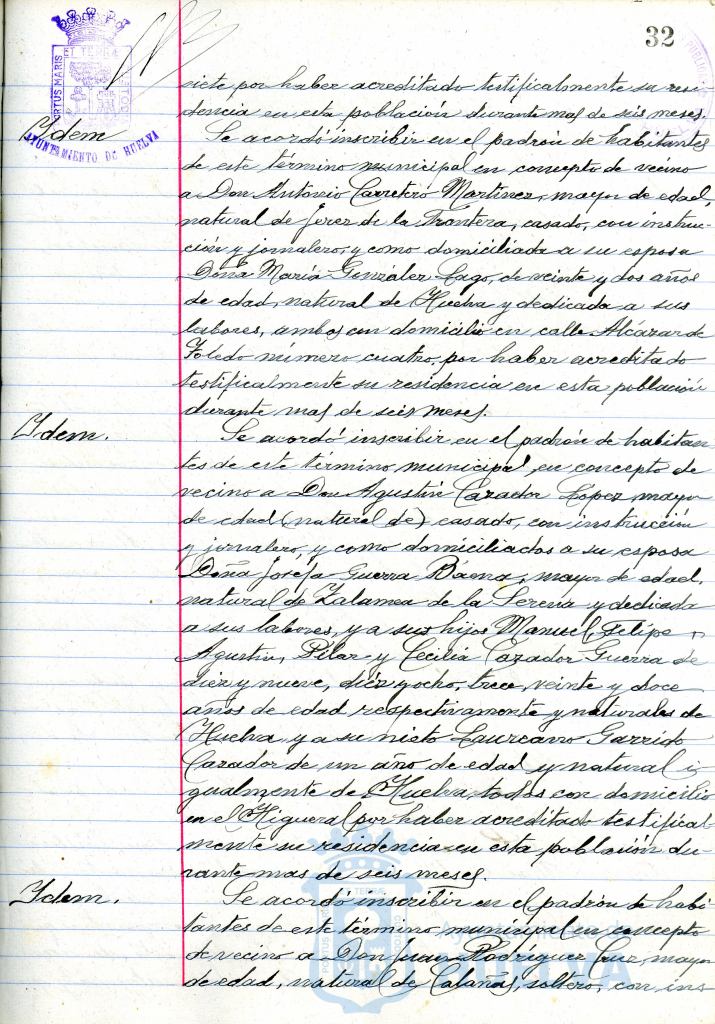 32
PORTUS MARIS ET TERRAE CUSTODIA
AYUNTAMIENTO DE HUELVA
siete por haber acreditado testificalmente su resi-
dencia en esta población durante mas de seis meses.
Idem
Se acordó inscribir en el padrón de habitantes
de este término municipal en concepto de vecino
a Don Antonio Carretero Martinez, mayor de edad,
natural de Jerez de la Frontera, casado, con instruc-
ción y jornalero, y como domiciliada a su esposa
Doña María González Lago, de veinte y dos años
de edad, natural de Huelva y dedicada a sus
labores, ambos con domicilio en calle Alcázar de
Toledo número cuatro, por haber acreditado
testificalmente su residencia en esta población
durante mas de seis meses.
Idem.
Se acordó inscribir en el padrón de habitan-
tes de este término municipal, en concepto de
vecino a Don Agustín Cazador López, mayor
de edad (natural de) casado, con instrucción
y jornalero, y como domiciliados a su esposa
Doña Josefa Guerra Báena, mayor de edad,
natural de Zalamea de la Serena y dedicada
a sus labores, y a sus hijos Manuel, Felipe,
Agustin, Pilar y Cecilia Cazador Guerra de
diez y nueve, diez y ocho, trece, veinte y doce
años de edad respectivamente y naturales de
Huelva y a su nieto Laureano Garrido
Cazador de un año de edad y natural i-
gualmente de Huelva, todos con domicilio
en el Higueral por haber acreditado testifical-
mente su residencia en esta población du-
rante mas de seis meses.
Idem.
Se acordó inscribir en el padrón de habi-
tantes de este término municipal en concepto
de vecino a Don Juan Rodríguez Cruz, mayor
de edad, natural de Calañas, soltero, con ins-